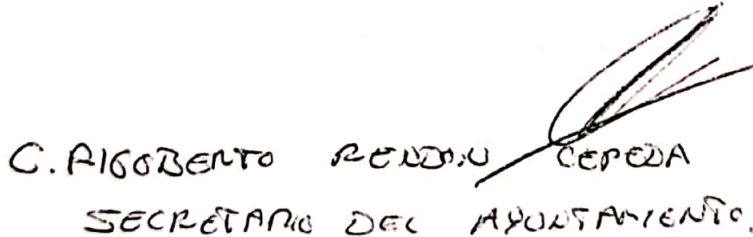 C. RIGOBERTO RENDON CEPEDA
SECRETARIO DEL AYUNTAMIENTO.